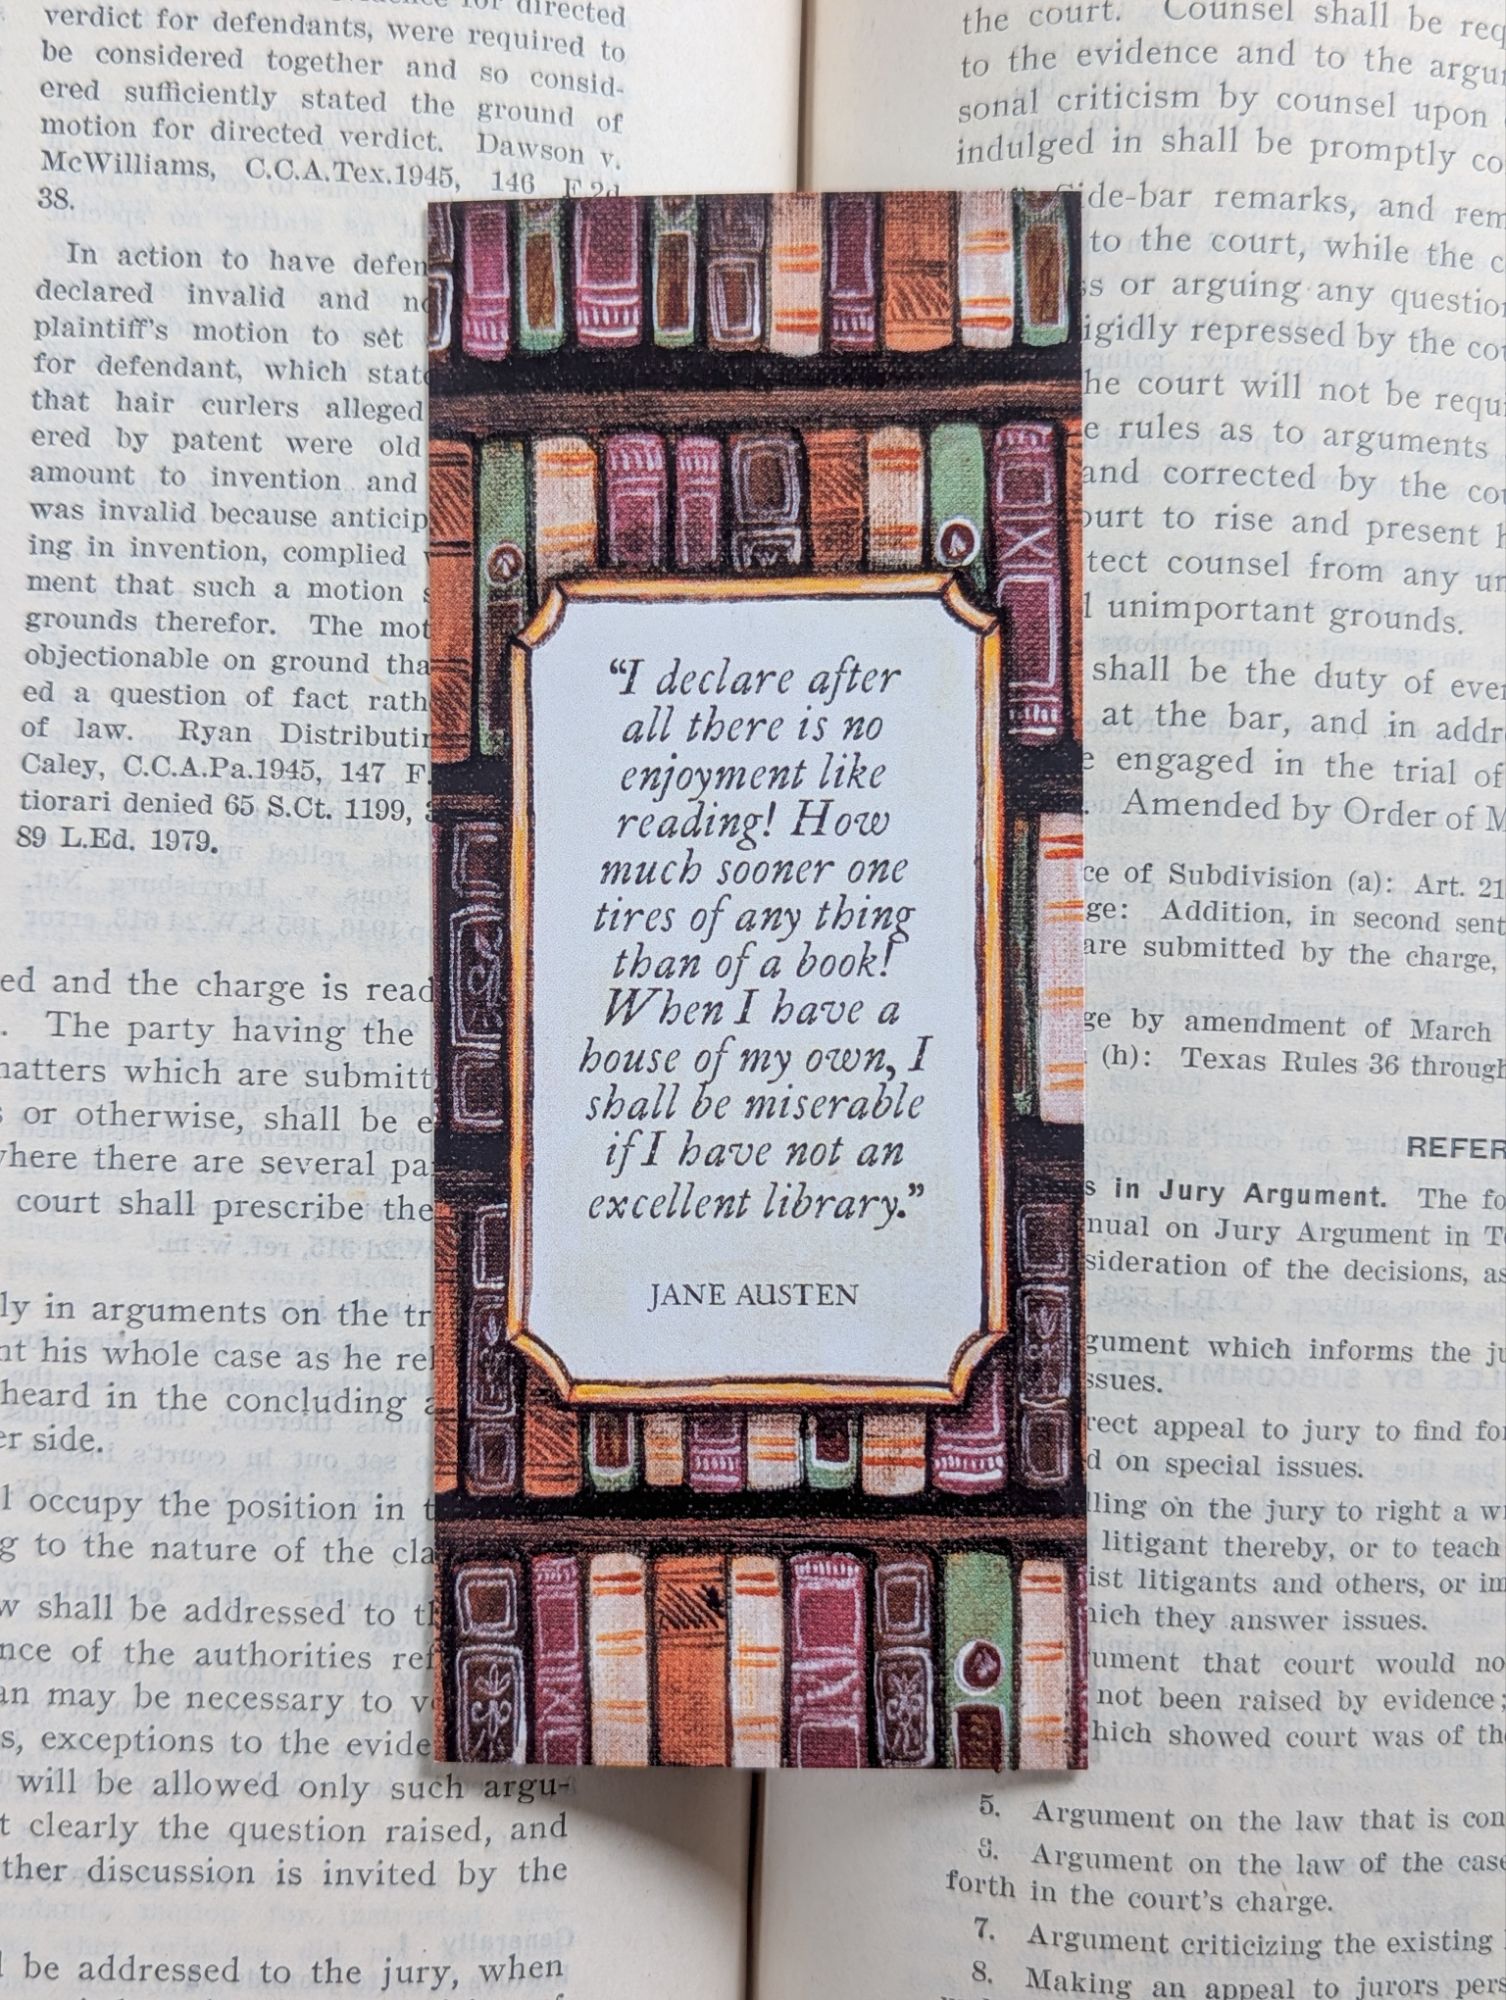 verdict for defendants, were required to
be considered together and so consid-
ered sufficiently stated the ground of
motion for directed verdict. Dawson v.
McWilliams, C.C.A.Tex.1945, 146 F.2d
38.
In action to have defen
declared invalid and
plaintiff's motion to set
for defendant, which
that hair curlers alleged
ered by patent were old
amount to invention and
was invalid because anticip
ing in invention, complied
ment that such a motion
grounds therefor. The mot
objectionable on ground tha
ed a question of fact rath
of law. Ryan Distributi
Caley, C.C.A.Pa.1945, 147 F.
tiorari denied 65 S.Ct. 1199,
89 L.Ed. 1979.
ed and the charge is read
. The party having the
matters which are submitt
s or otherwise, shall be e
where there are several pa
court shall prescribe the
ly in arguments on the tr
nt his whole case as he rel
heard in the concluding a
er side.
l occupy the position in t
g to the nature of the cla
w shall be addressed to th
nce of the authorities ref
an may be necessary to v
s, exceptions to the evide
will be allowed only such argu-
t clearly the question raised, and
ther discussion is invited by the
l be addressed to the jury, when
“I declare after
all there is no
enjoyment like
reading! How
much sooner one
tires of any thing
than of a book!
When I have a
house of my own, I
shall be miserable
if I have not an
excellent library.”
JANE AUSTEN
the court. Counsel shall be req
to the evidence and to the argu
sonal criticism by counsel upon
indulged in shall be promptly co
Side-bar remarks, and rem
to the court, while the c
s or arguing any question
igidly repressed by the cou
he court will not be requi
e rules as to arguments
and corrected by the cou
ourt to rise and present h
tect counsel from any un
l unimportant grounds.
shall be the duty of ever
at the bar, and in addr
e engaged in the trial of
. Amended by Order of M
ce of Subdivision (a): Art. 21
ge: Addition, in second sent
are submitted by the charge,
ge by amendment of March
(h): Texas Rules 36 through
REFER
s in Jury Argument. The fo
nual on Jury Argument in Te
sideration of the decisions, as
gument which informs the ju
ssues.
rect appeal to jury to find for
d on special issues.
lling on the jury to right a wr
litigant thereby, or to teach
ist litigants and others, or im
hich they answer issues.
ument that court would no
not been raised by evidence;
hich showed court was of the
5. Argument on the law that is con
Argument on the law of the case
forth in the court's charge.
7. Argument criticizing the existing
8. Making an appeal to jurors pers